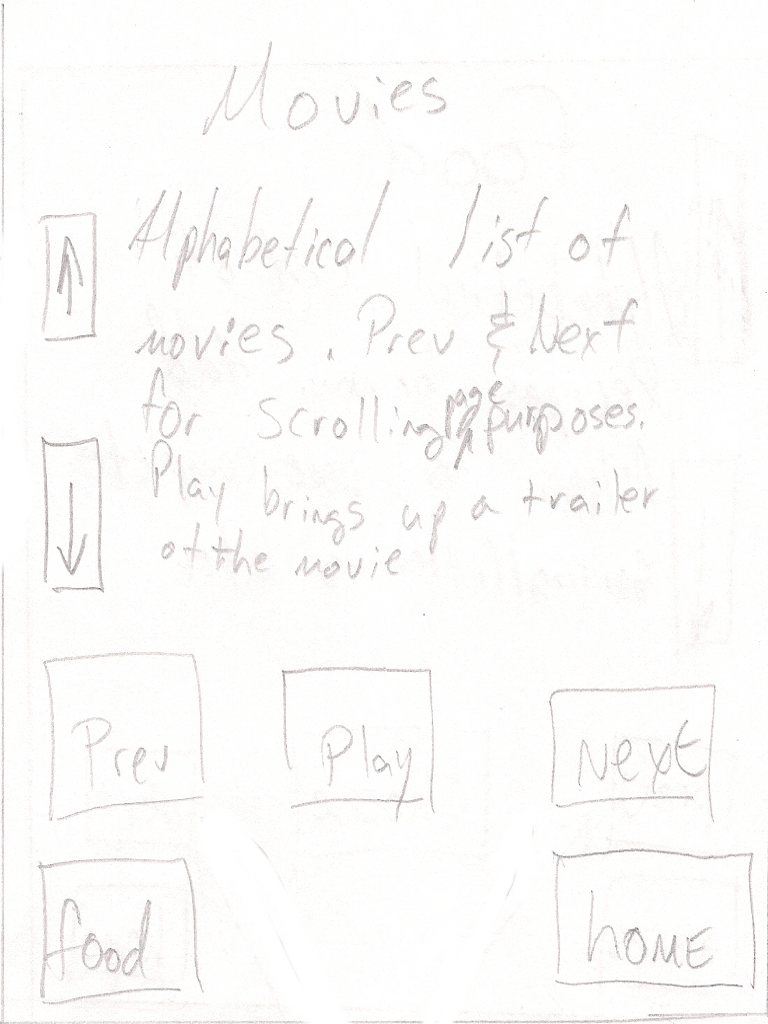 Movies
↑
Alphabetical list of
movies. Prev & Next
for scrolling page purposes.
Play brings up a trailer
of the movie
↓
Prev Play Next
food home